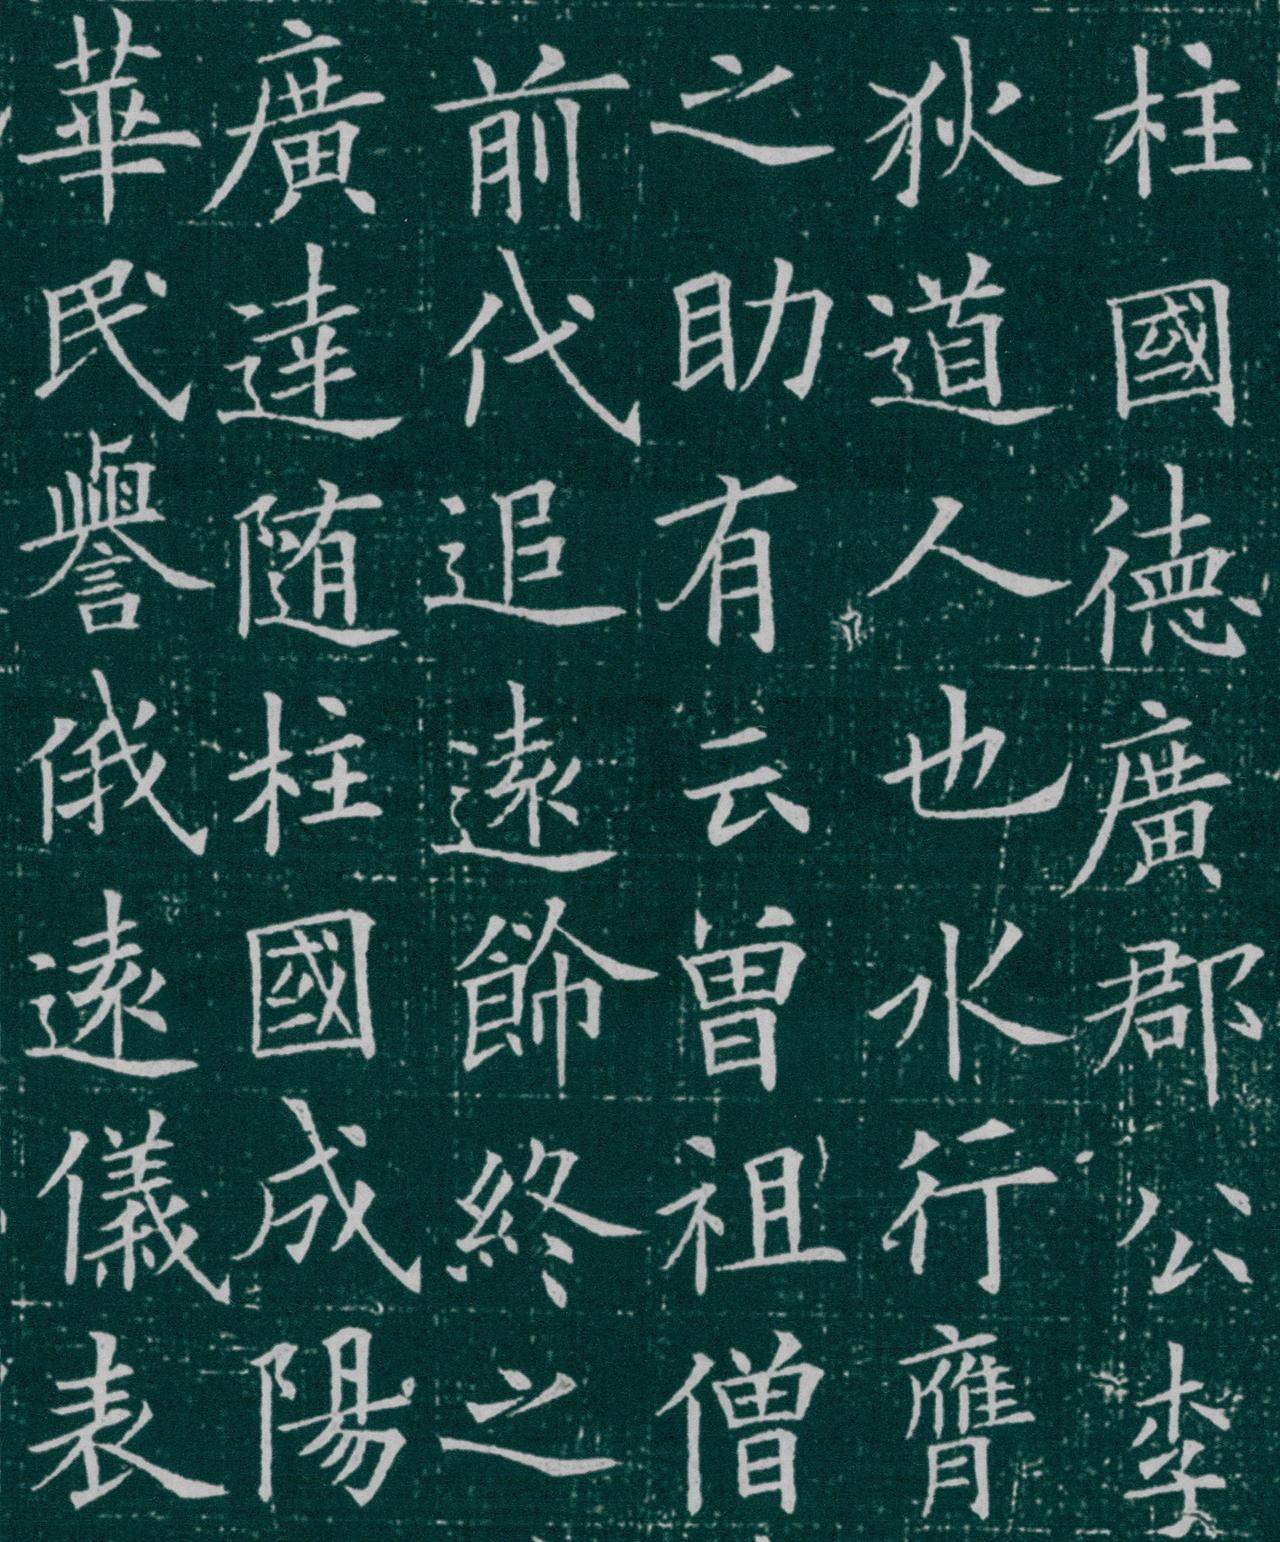 柱國德廣郡公李
狄道人也水行膺
之助有云曽祖僧
前代追逺飾終之
廣達随柱國成陽
華民譽俄逺儀表